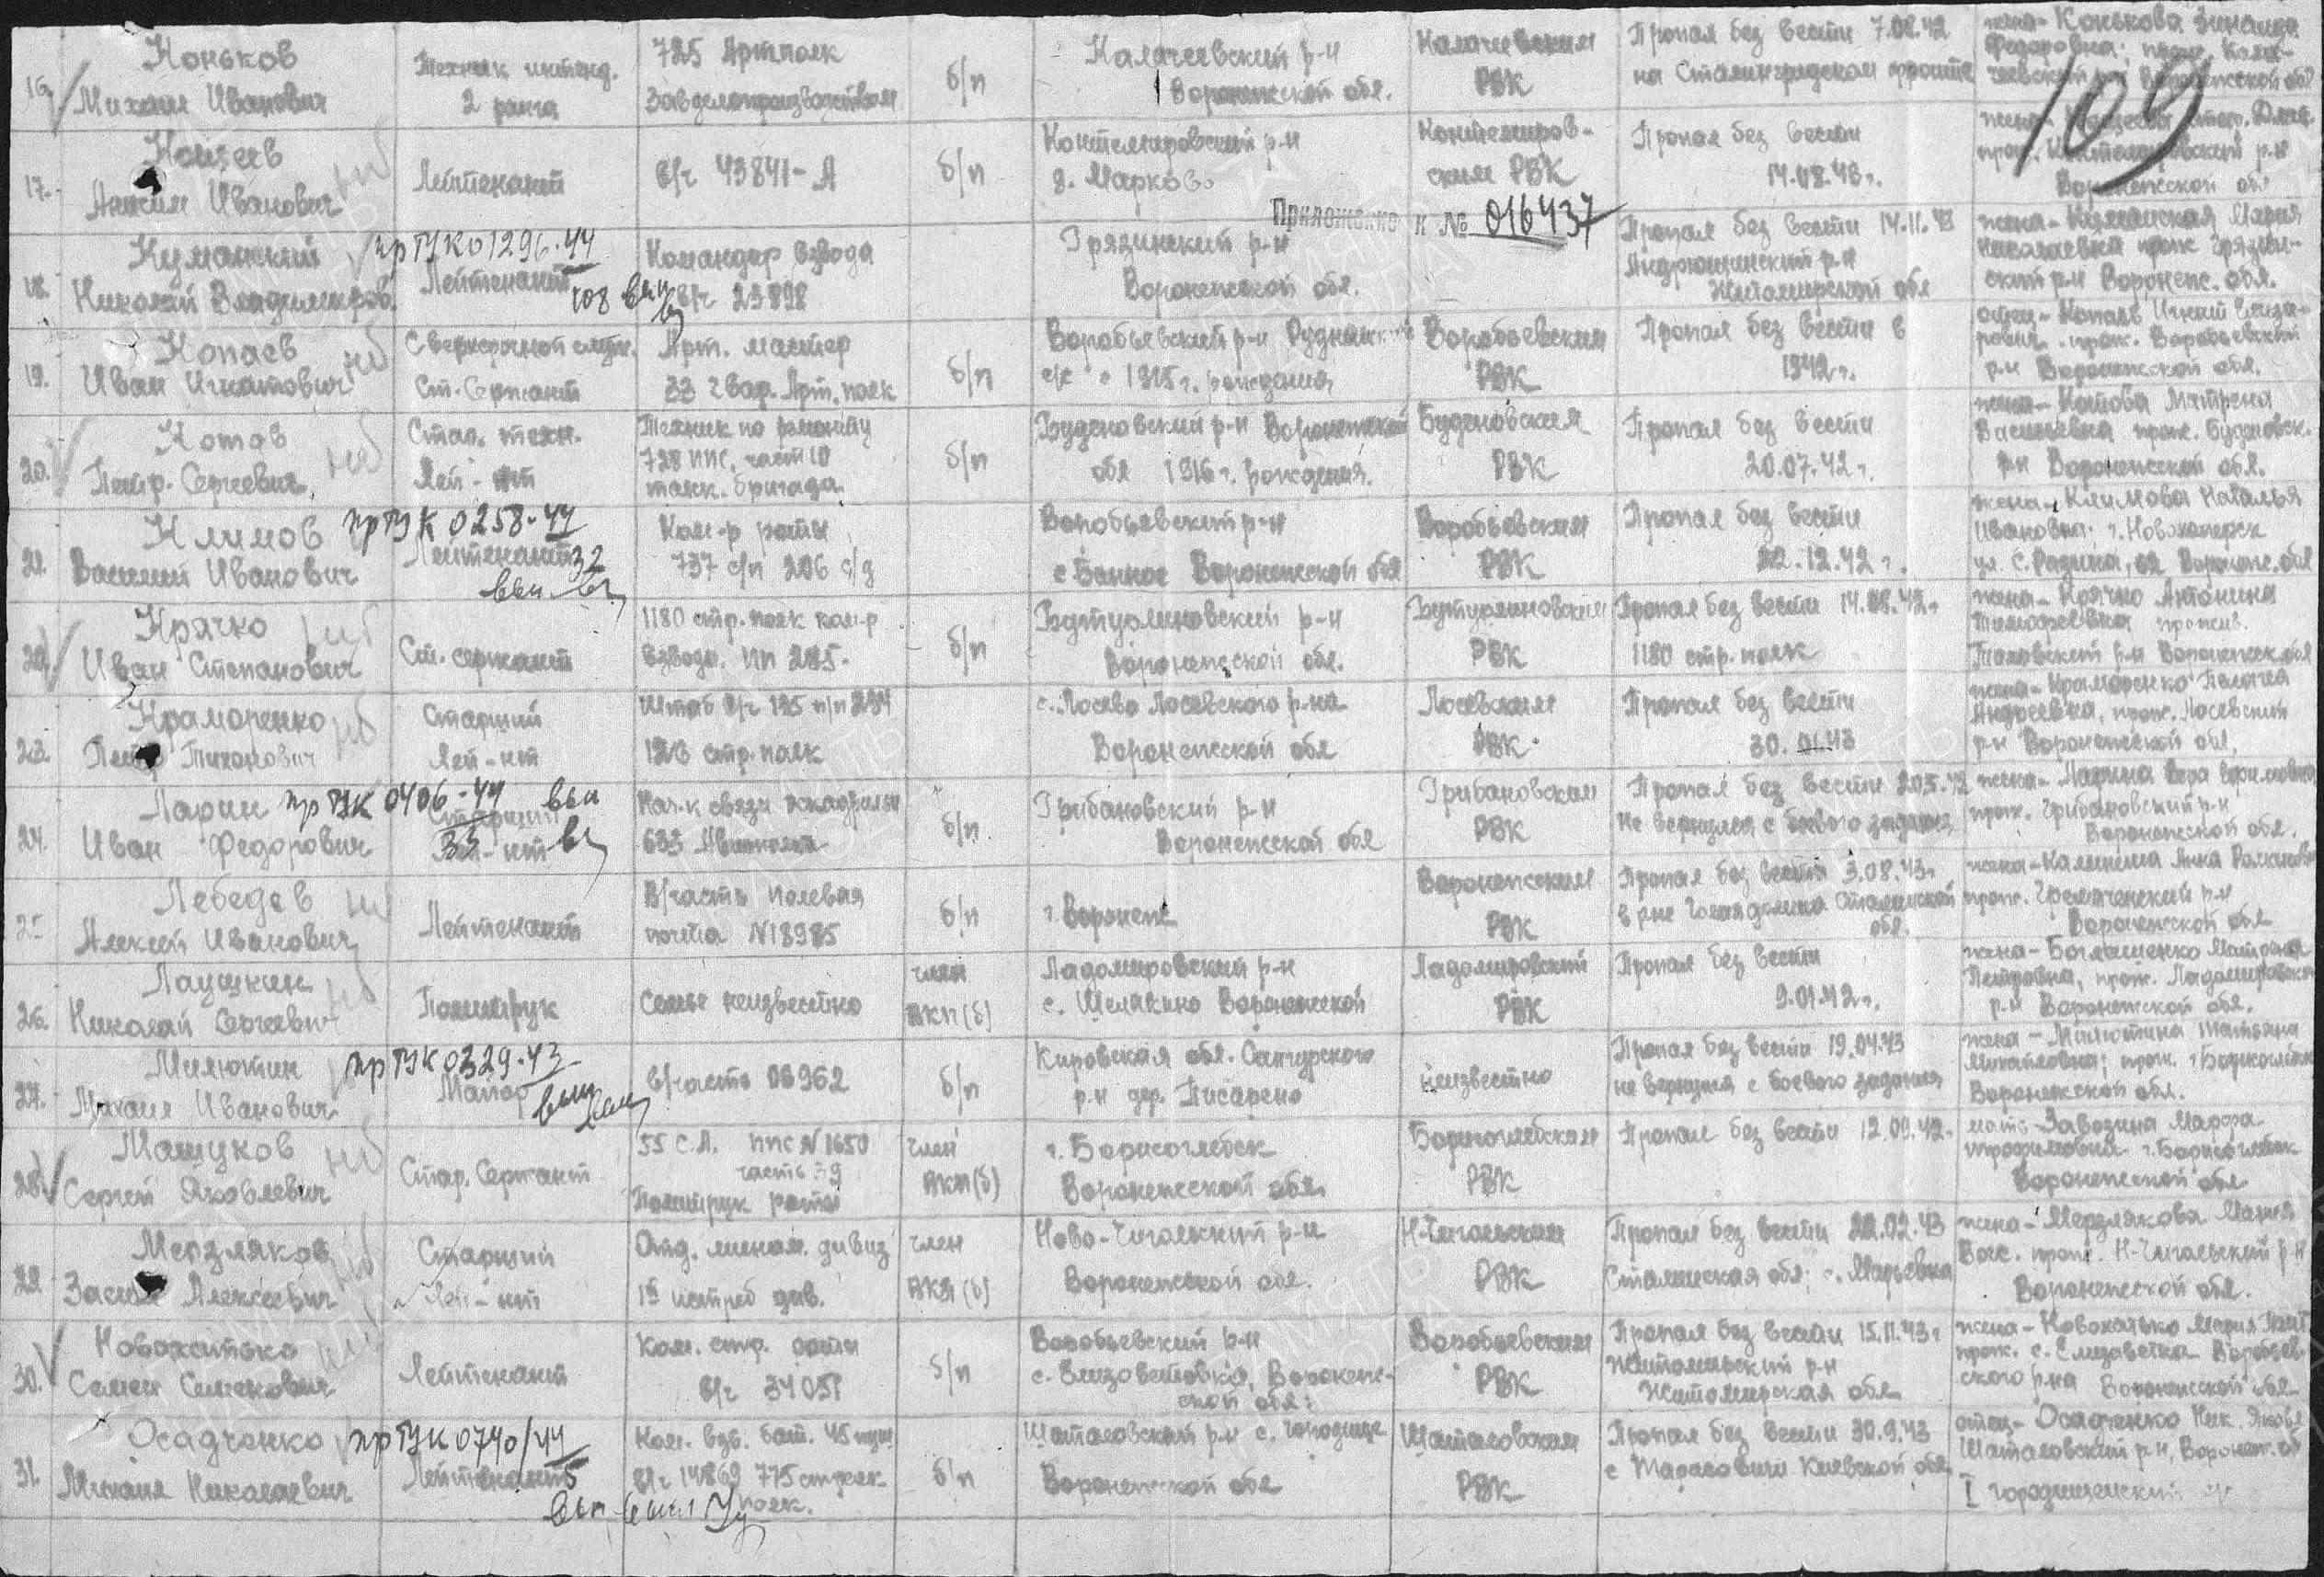 109
Приложение к № 016437
16. Коньков
Михаил Иванович
Техник интенд.
2 ранга
725 Артполк
Завделопроизводством
б/п
Калачеевский р-н
Воронежской обл.
Калачеевским
РВК
Пропал без вести 7.08.42
на Сталинградском фронте
жена - Конькова Зинаида
Федоровна; прож. Кала-
чеевский р-н Воронежской обл
17. Кощеев
Анисим Иванович
Лейтенант
в/ч 43841-А
б/п
Контемировский р-н
д. Марково
Контемиров-
ским РВК
Пропал без вести
14.08.43г.
прож. Контемировский р-н
Воронежской обл
18. Кузманский
Николай Владимиров.
прГУК 01296-44
Лейтенант
108 вып
Командир взвода
в/ч 23898
Грязинский р-н
Воронежской обл.
Пропал без вести 14.11.43
Андрюшинский р-н
Житомирской обл
жена - Кузманская Мария
Николаевна прож. Грязин-
ский р-н Воронеж. обл.
19. Копаев
Иван Игнатович
нб
Сверхсрочной служ.
Ст. Сержант
Арт. мастер
33 гвар. Арт. полк
б/п
Воробьевский р-н Руднянский
с/с 1915г. рождения
Воробьевским
РВК
Пропал без вести в
1942г.
отец - Копаев Игнат Елиза-
рович. прож. Воробьевский
р-н Воронежской обл.
20. Котов
Петр. Сергеевич
нб
Стар. техн.
Лей-нт
Техник по ремонту
728 ППС, часть 10
танк. бригада
б/п
Буденовский р-н Воронежской
обл 1916г. рождения.
Буденовским
РВК
Пропал без вести
20.07.42г.
жена - Котова Матрена
Васильевна прож. Буденовск.
р-н Воронежской обл.
21. Климов
Василий Иванович
прГУК 0258-44
Лейтенант 32
вып
Ком-р роты
737 с/п 206 с/д
Воробьевский р-н
с. Банное Воронежской обл
Воробьевским
РВК
Пропал без вести
22.12.42г.
жена - Климова Наталья
Ивановна; г. Новохоперск
ул. С. Разина, 62 Воронеж. обл
22. Крячко
Иван Степанович
нб
Ст. сержант
1180 стр. полк ком-р
взвода. ПП 285.
б/п
Бутурлиновский р-н
Воронежской обл.
Бутурлиновским
РВК
Пропал без вести 14.08.42г
1180 стр. полк
жена - Крячко Антонина
Тимофеевна прожив.
Таловский р-н Воронежск. обл
23. Краморенко
Петр Тихонович
нб
Старший
Лей-нт
Штаб в/ч 195 п/п 234
126 стр. полк
с. Лосево Лосевского р-на
Воронежской обл
Лосевским
РВК
Пропал без вести
30.01.43
жена - Краморенко Пелагея
Андреевна, прож. Лосевский
р-н Воронежской обл.
24. Ларин
Иван Федорович
прГУК 0406-44 вып
Старший
Лей-нт
33
Нач-к связи эскадрильи
633 Авиаполка
б/п
Грибановский р-н
Воронежской обл
Грибановским
РВК
Пропал без вести 20.5.42
не вернулся с боевого задания
жена - Ларина Вера Ефимовна
прож. Грибановский р-н
Воронежской обл.
25 Лебедев
Алексей Иванович
Лейтенант
В/часть полевая
почта N 18985
б/п
г. Воронеж
Воронежским
РВК
Пропал без вести 3.08.43г
Сталинской
обл.
жена - Калинина Анна Романовна
прож. Гремяченский р-н
Воронежской обл
26. Лаушкин
Николай Сергеевич
нб
Политрук
Семье неизвестно
член
ВКП(б)
Ладомировский р-н
с. Шелякино Воронежской
Ладомировский
РВК
Пропал без вести
9.01.42г.
жена - Богмашенко Матрена
Петровна, прож. Ладомировский
р-н Воронежской обл.
27. Милютин
Михаил Иванович
прГУК 0329-43
Майор
вып
в/часть 06962
б/п
Кировская обл. Санчурского
р-н дер. Писарено
неизвестно
Пропал без вести 19.04.43
не вернулся с боевого задания
жена - Милютина Татьяна
Михайловна; прож. г. Борисоглебск
Воронежской обл.
28. Машуков
Сергей Яковлевич
нб
Стар. Сержант
55 С.Д. ППС N 1650
часть 39
Политрук роты
член
ВКП(б)
г. Борисоглебск
Воронежской обл.
Борисоглебским
РВК
Пропал без вести 12.09.42г
мать - Завозина Марфа
Трофимовна г. Борисоглебск
Воронежской обл
29 Мерзляков
Василий Алексеевич
Старший
Лей-нт
Отд. мином. дивиз
15 истреб див.
член
ВКП(б)
Ново-Чигольский р-н
Воронежской обл.
Н-Чигольским
РВК
Пропал без вести 22.02.43
Сталинская обл; с. Марьевка
жена - Мерзлякова Мария
Вас. прож. Н-Чигольский р-н
Воронежской обл.
30. Новохатько
Семен Семенович
Лейтенант
Ком. стр. роты
в/ч 34051
б/п
Воробьевский р-н
с. Елизаветовка, Воронеж-
ской обл.
Воробьевским
РВК
Пропал без вести 15.11.43г
Житомирский р-н
Житомирская обл
жена - Новохатько Мария
прож. с. Елизаветка Воробьев-
ского р-на Воронежской обл.
31. Осадченко
Михаил Николаевич
прГУК 0740/44
Лейтенант 5
вып
Ком. взв. бат. 45 пуш
в/ч 14869 775 стрелк
полк.
б/п
Шаталовский р-н с. Городище
Воронежской обл
Шаталовским
РВК
Пропал без вести 30.9.43
с Тарасовичи Киевской обл
отец - Осадченко Ник. Яковл
Шаталовский р-н, Воронеж. об
I городищенский